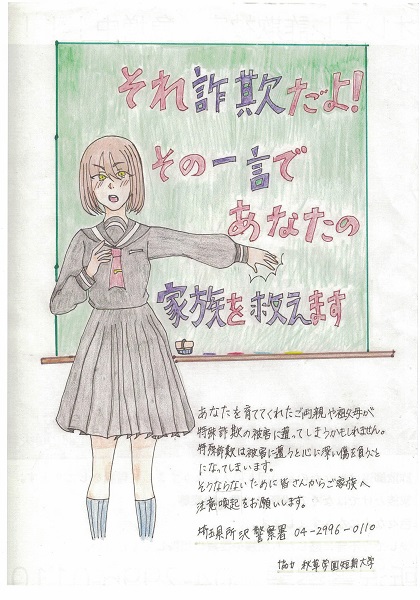 それ詐欺だよ!
その一言で
あなたの
家族を救えます
あなたを育ててくれたご両親や祖父母が
特殊詐欺の被害に遭ってしまうかもしれません。
特殊詐欺は被害に遭うと心に深い傷を負うこと
になってしまいます。
そうならないために皆さんからご家族へ
注意喚起をお願いします。
埼玉県所沢警察署 04-2996-0110
協力 秋草学園短期大学